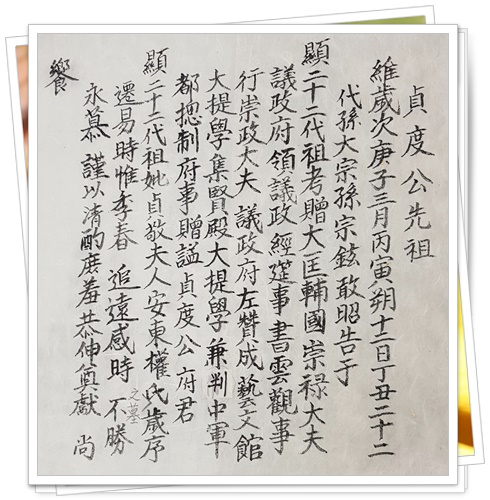 貞度公先祖
維歲次庚子三月丙寅朔十二日丁丑二十二
代孫大宗孫宗鉉敢昭告于
顯二十二代祖考贈大匡輔國崇禄大夫
議政府領議政經筵事書雲觀事
行崇政大夫 議政府左贊成藝文館
大提學集賢殿大提學兼判中軍
都摠制府事贈謚貞度公府君
顯二十二代祖妣貞敬夫人安東權氏歲序
之墓
遷易時惟季春 追遠感時 不勝
永慕 謹以清酌庶羞恭伸奠獻 尚
饗